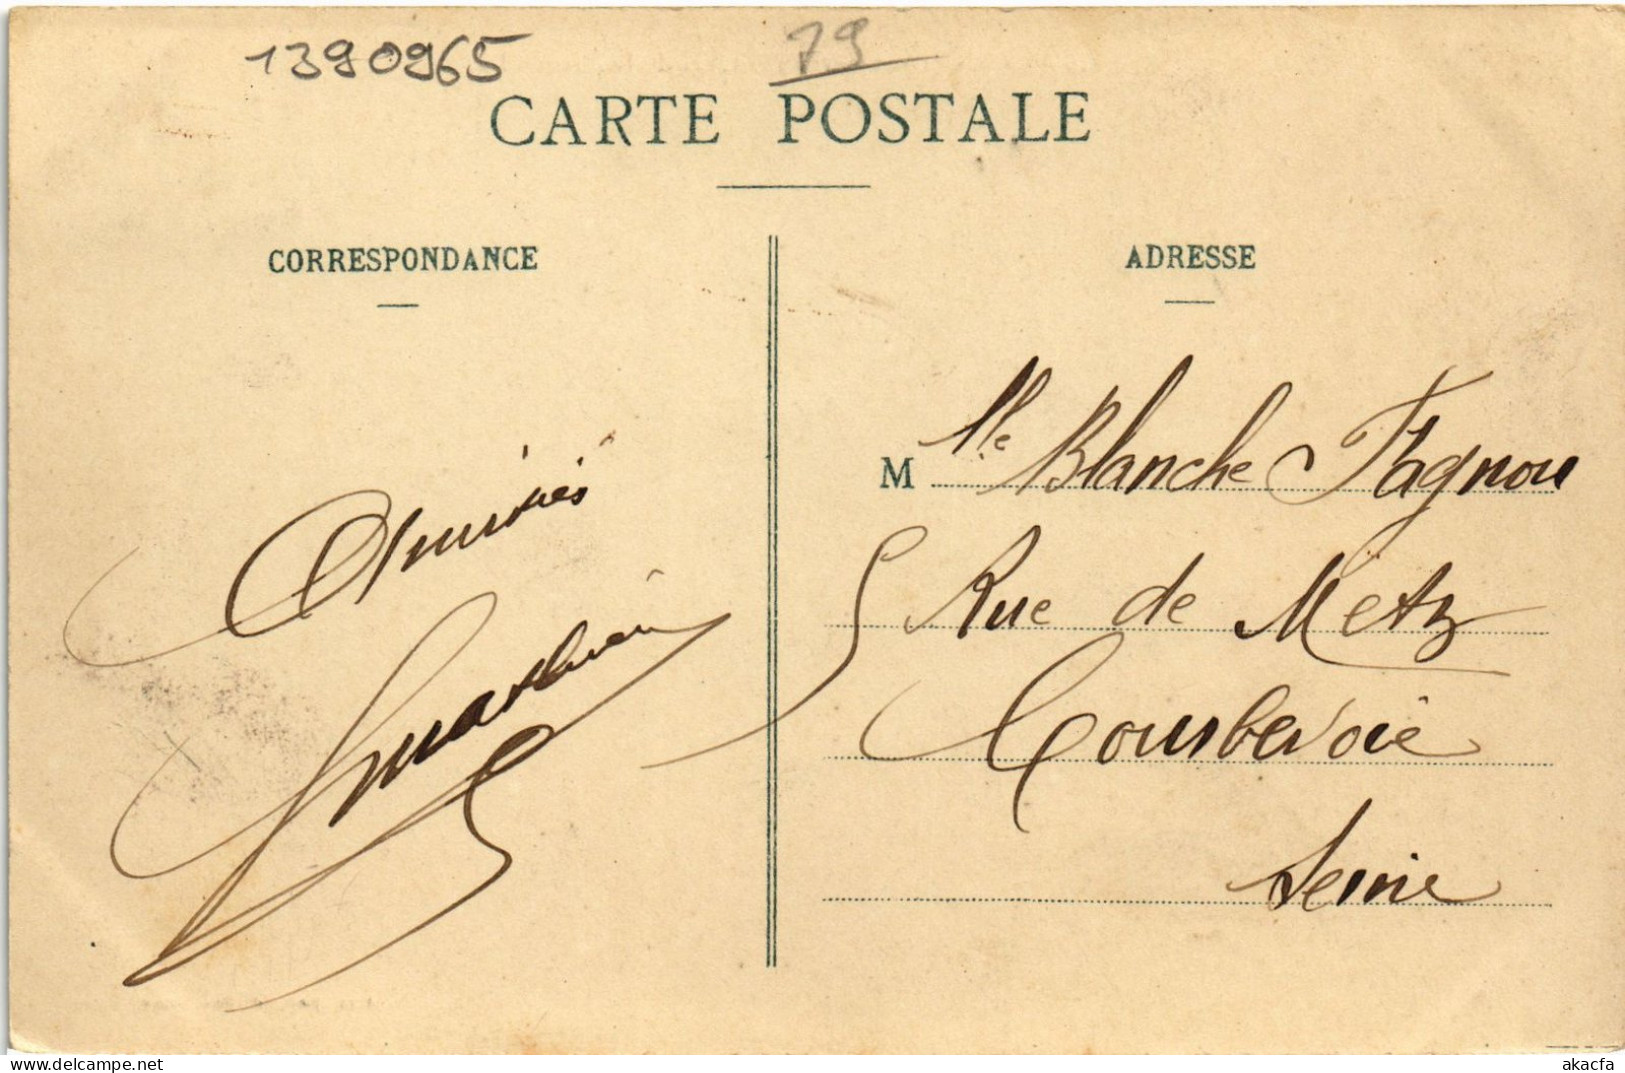 1390965
79
CARTE POSTALE
CORRESPONDANCE
ADRESSE
Amitiés
M lle Blanche Fagnou
5 Rue de Metz
Courbevoie
Seine
akacfa